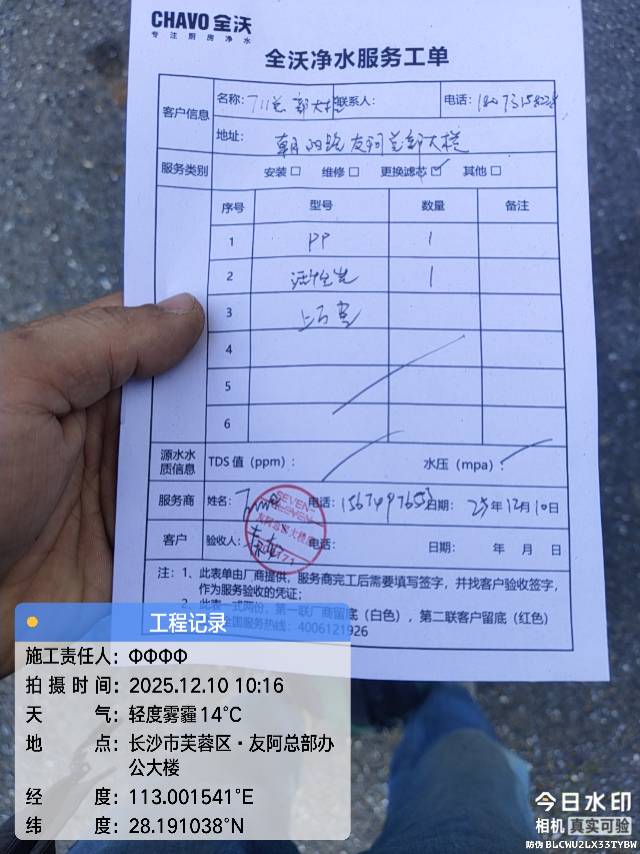 CHAVO 全沃
专注厨房净水
全沃净水服务工单
客户信息 名称：711总部大楼 联系人： 电话：
地址：朝阳路友阿总部大楼
服务类别 安装□ 维修□ 更换滤芯☑ 其他□
序号 型号 数量 备注
1 PP 1
2 活性炭 1
3
4
5
6
源水水质信息 TDS值（ppm）： 水压（mpa）：
服务商 姓名： 电话： 日期：25年12月10日
客户 验收人： 电话： 日期： 年 月 日
SEVEN
ELEVEN
注：1、此表单由厂商提供，服务商完工后需要填写签字，并找客户验收签字，
作为服务验收的凭证；
2、此表一式两份，第一联厂商留底（白色），第二联客户留底（红色）
全国服务热线：4006121926
工程记录
施工责任人：ФФФФ
拍摄时间：2025.12.10 10:16
天气：轻度雾霾14℃
地点：长沙市芙蓉区·友阿总部办
公大楼
经度：113.001541°E
纬度：28.191038°N
今日水印
相机 真实可验
防伪 BLCWU2LX33TYBW